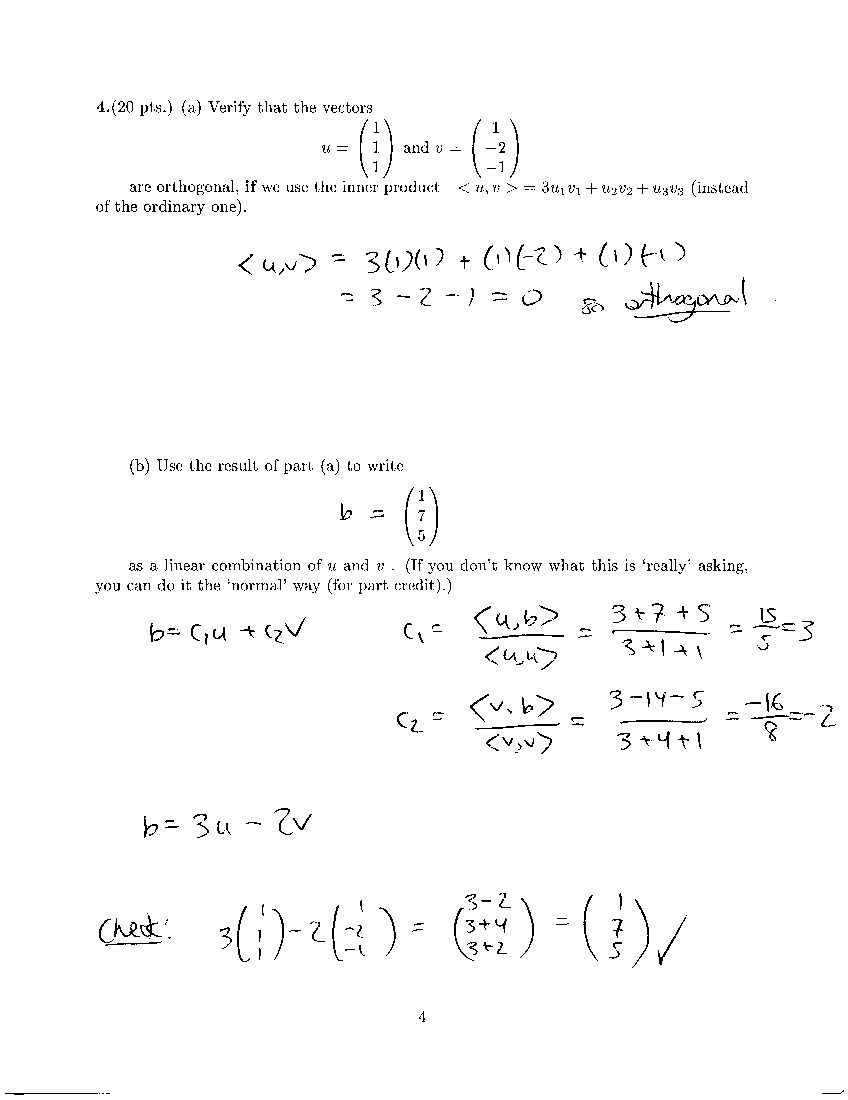 4.(20 pts.) (a) Verify that the vectors
u = (1 1 1) and v = (1 −2 −1)
are orthogonal, if we use the inner product < u, v > = 3u₁v₁ + u₂v₂ + u₃v₃ (instead
of the ordinary one).
<u,v> = 3(1)(1) + (1)(-2) + (1)(-1)
= 3 - 2 - 1 = 0 so orthogonal
(b) Use the result of part (a) to write
b = (1 7 5)
as a linear combination of u and v . (If you don't know what this is 'really' asking,
you can do it the 'normal' way (for part credit).)
b = c₁u + c₂v c₁ = <u,b>/<u,u> = (3+7+5)/(3+1+1) = 15/5 = 3
c₂ = <v,b>/<v,v> = (3-14-5)/(3+4+1) = -16/8 = -2
b = 3u - 2v
Check: 3(1 1 1) - 2(1 -2 -1) = (3-2 3+4 3+2) = (1 7 5) ✓
4